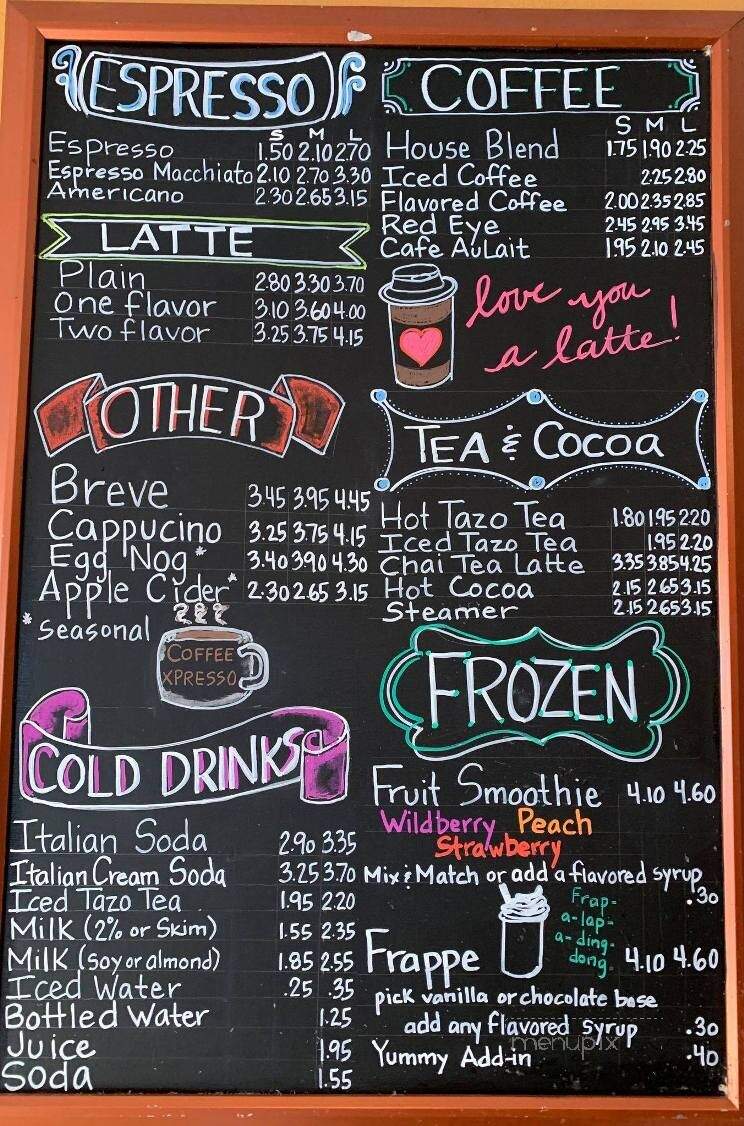 ESPRESSO
S M L
Espresso 1.50 2.10 2.70
Espresso Macchiato 2.10 2.70 3.30
Americano 2.30 2.65 3.15
LATTE
Plain 2.80 3.30 3.70
One flavor 3.10 3.60 4.00
Two flavor 3.25 3.75 4.15
OTHER
Breve 3.45 3.95 4.45
Cappucino 3.25 3.75 4.15
Egg Nog* 3.40 3.90 4.30
Apple Cider* 2.30 2.65 3.15
*Seasonal
COFFEE
XPRESSO
COLD DRINKS
Italian Soda 2.90 3.35
Italian Cream Soda 3.25 3.70
Iced Tazo Tea 1.95 2.20
Milk (2% or Skim) 1.55 2.35
Milk (Soy or almond) 1.85 2.55
Iced Water .25 .35
Bottled Water 1.25
Juice 1.95
Soda 1.55
COFFEE
S M L
House Blend 1.75 1.90 2.25
Iced Coffee 2.25 2.80
Flavored Coffee 2.00 2.35 2.85
Red Eye 2.45 2.95 3.45
Cafe AuLait 1.95 2.10 2.45
love you
a latte!
TEA & COCOA
Hot Tazo Tea 1.80 1.95 2.20
Iced Tazo Tea 1.95 2.20
Chai Tea Latte 3.35 3.85 4.25
Hot Cocoa 2.15 2.65 3.15
Steamer 2.15 2.65 3.15
FROZEN
Fruit Smoothie 4.10 4.60
Wildberry Peach
Strawberry
Mix & Match or add a flavored syrup
.30
Frap-
a-lap-
a-ding-
dong
Frappe 4.10 4.60
pick vanilla or chocolate base
add any flavored syrup .30
Yummy Add-in .40
menupix